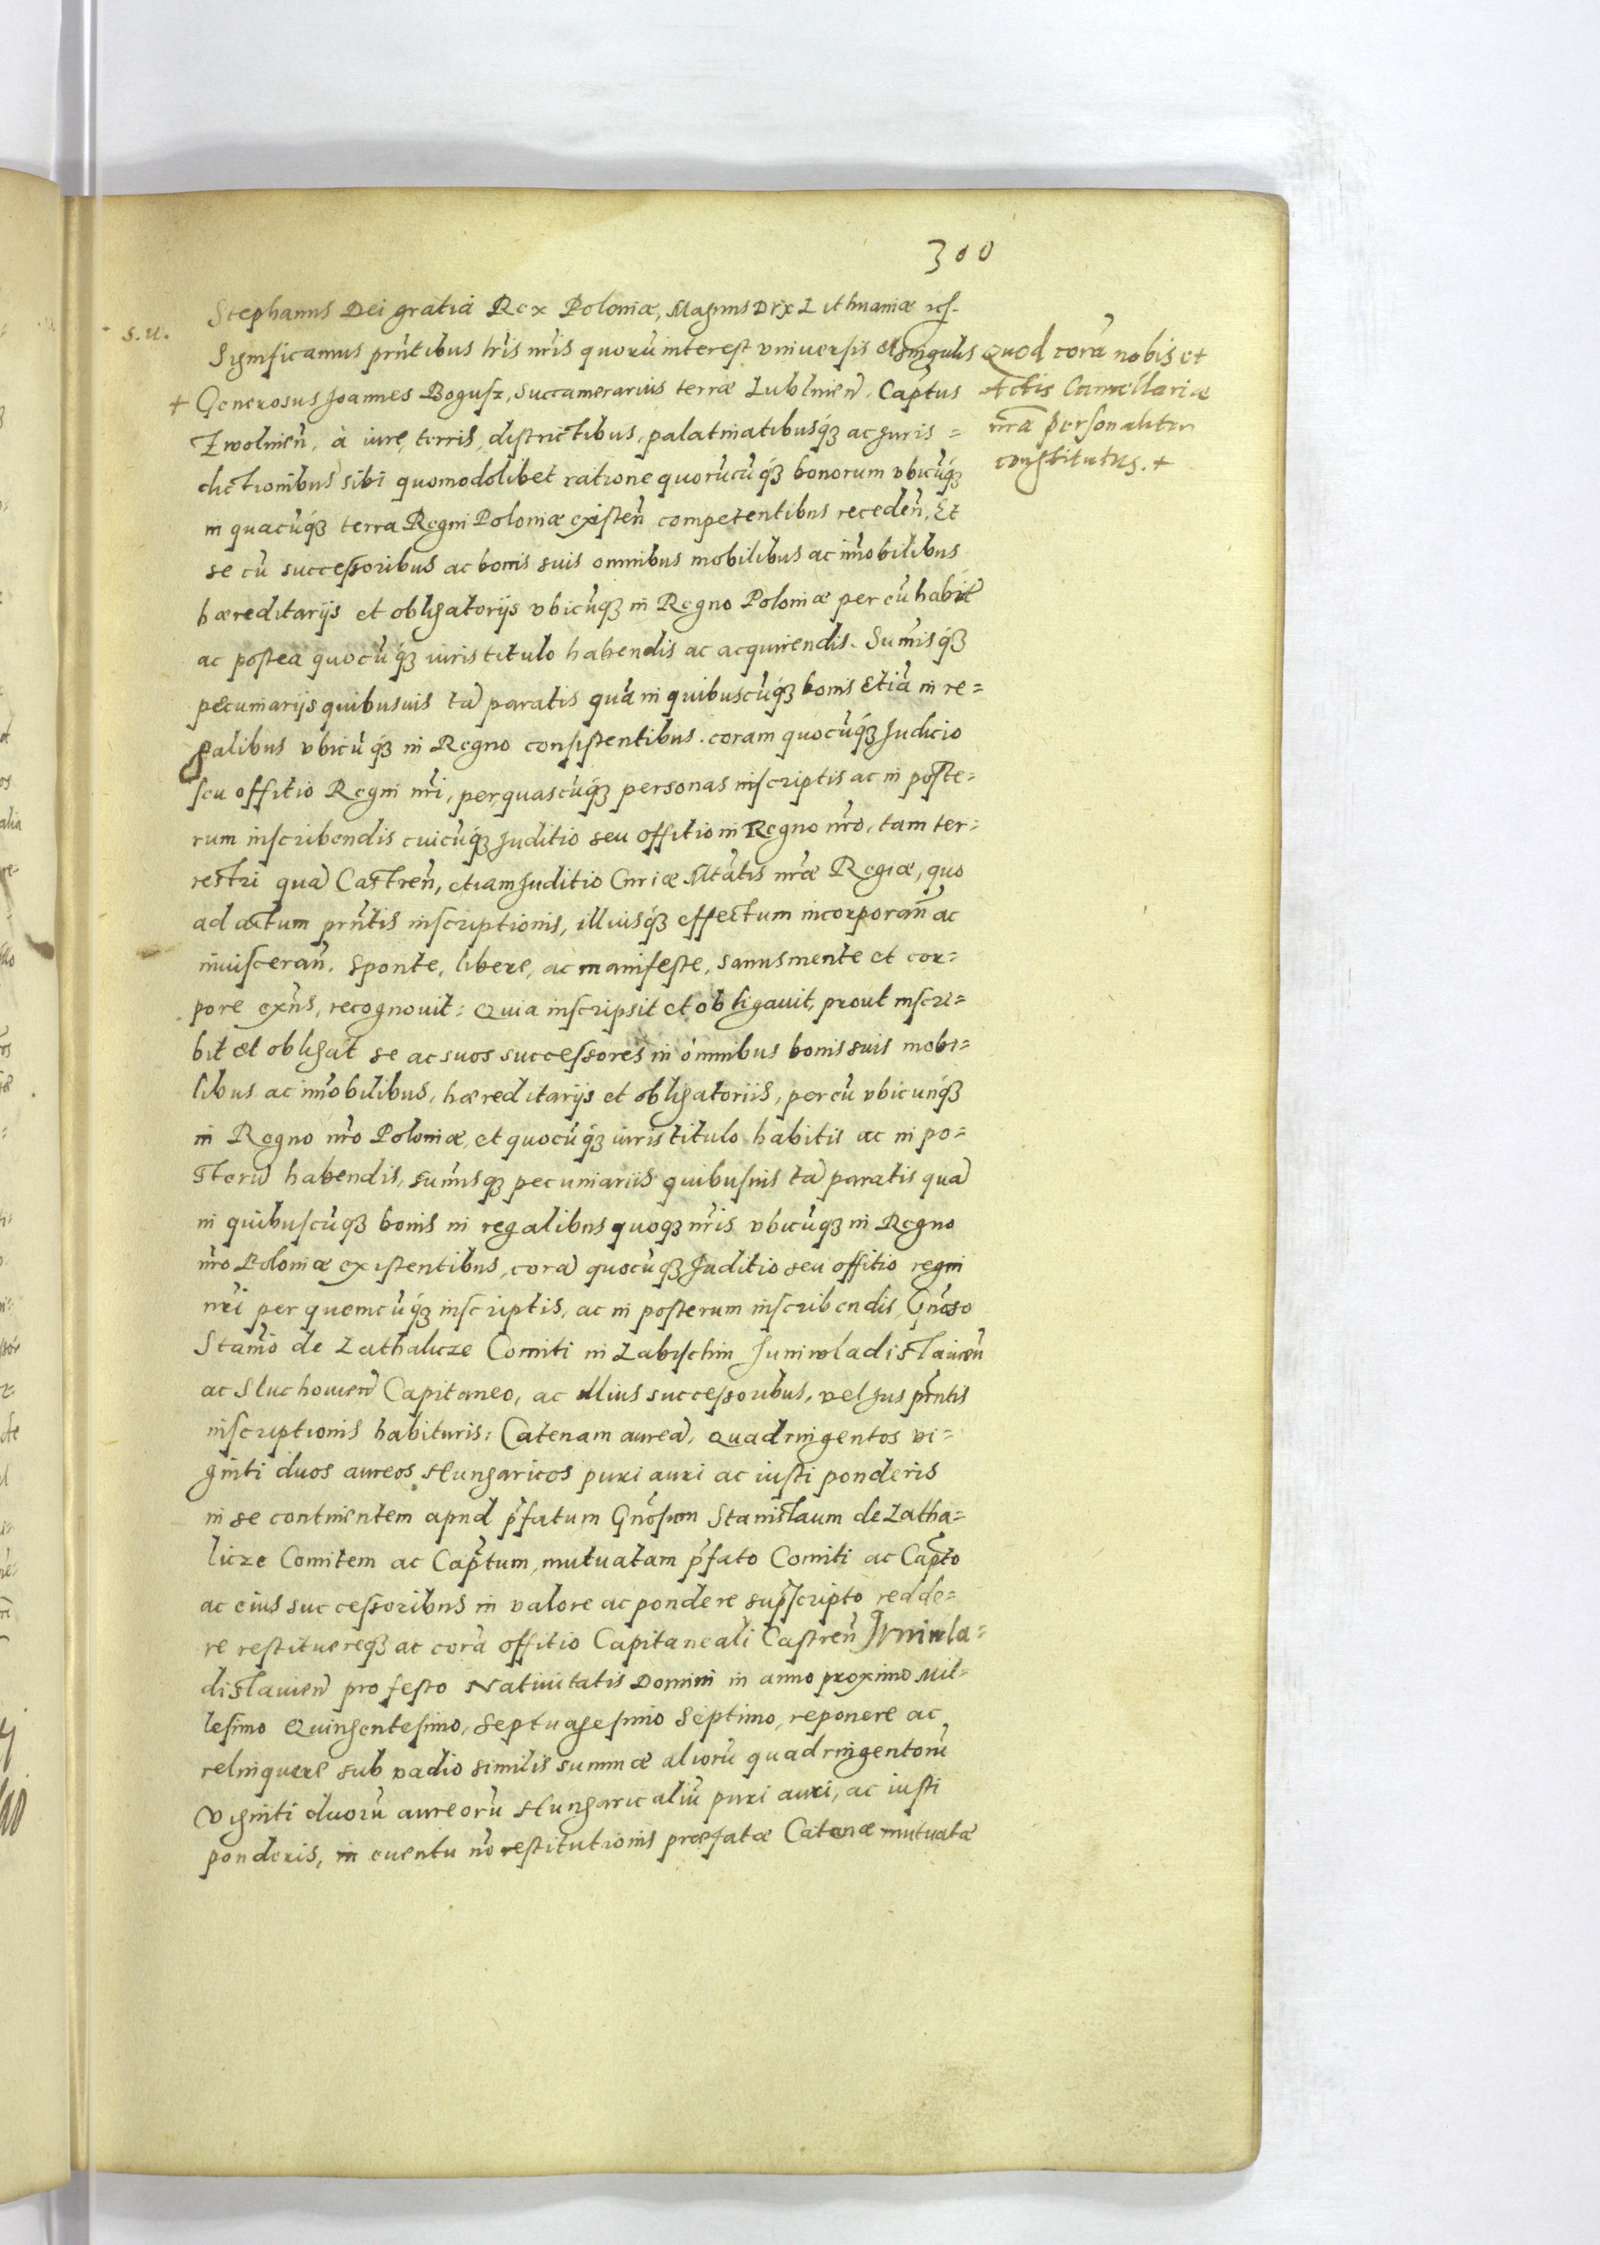 300
s. u.
Stephanus Dei gratia Rex Poloniæ, Magnus Dux Lithuaniæ
Significamus prñtibus lr̃is nr̃is quorũ interest vniuersis et singulis
Quod corã nobis et
Actis Cancellariæ
nrã personaliter
constitutus. +
+ Generosus Joannes Bogusz, Succamerarius terræ Lublineñ. Capt̃us
Zwolineñ. à iure, terris, districtibus, palatinatibusq́ꝫ ac Juris=
dictionibus sibi quomodolibet ratione quorũcũq́ꝫ bonorum vbicũq́ꝫ
in quacũq́ꝫ terra Regni Poloniæ existeñ competentibus recedeñ, Et
se cũ successoribus ac bonis suis omnibus mobilibus ac im̃obilibus
hæreditarijs et obligatorijs vbicũqꝫ in Regno Poloniæ per eũ habit̃
ac postea quocũq́ꝫ iuris titulo habendis ac acquirendis. Sum̃isq́ꝫ
pecuniarijs quibusuis tã paratis quã in quibuscũq́ꝫ bonis etiã in re=
galibus vbicũq́ꝫ in Regno consistentibus. coram quocũq́ꝫ Judicio
seu offitio Regni nr̃i, per quascũq́ꝫ personas inscriptis ac in poste=
rum inscribendis cuicũq́ꝫ Juditio seu offitio in Regno nr̃o, tam ter=
restri quã Castreñ, etiam Juditio Curiæ Mtãtis nr̃æ Regiæ, quo
ad actum prñtis inscriptionis, illiusq́ꝫ effectum incorporañ ac
inuiscerañ. Sponte, libere, ac manifeste, sanus mente et cor=
pore exñs, recognouit: Quia inscripsit et obligauit, prout inscri=
bit et obligat se ac suos successores in omnibus bonis suis mobi=
libus ac im̃obilibus, hæreditarijs et obligatoriis, per eũ vbicunq́ꝫ
in Regno nr̃o Poloniæ, et quocũq́ꝫ iuris titulo habitis ac in po=
sterũ habendis, sum̃isqꝫ pecuniariis quibusuis tã paratis quã
in quibuscũqꝫ bonis in regalibus quoqꝫ nr̃is vbicũqꝫ in Regno
nr̃o Poloniæ existentibus, corã quocũqꝫ Juditio seu offitio regni
nr̃i per quemcũq́ꝫ inscriptis, ac in posterum inscribendis, Gñoso
Stanĩo de Lathalicze Comiti in Labischin Juniwladislauieñ
ac Sluchouieñ Capitaneo, ac illius successoribus, vel Jus prñtis
inscriptionis habituris: Catenam aureã, quadringentos vi=
ginti duos aureos Hungaricos puri auri ac iusti ponderis
in se continentem apud p̃fatum Gñosum Stanislaum de Latha=
licze Comitem ac Cap̃tum, mutuatam p̃fato Comiti ac Cap̃to
ac eius successoribus in valore ac pondere sup̃scripto redde=
re restituereqꝫ ac corã offitio Capitaneali Castreñ Juniwla=
dislauieñ pro festo Natiuitatis Domini in anno proximo Mil=
lesimo Quingentesimo, Septuagesimo Septimo, reponere ac
relinquere sub vadio similis summæ aliorũ quadringentorũ
viginti duorũ aureorũ Hungaricaliũ puri auri, ac iusti
ponderis, in euentu nõ restitutionis præfatæ Catenæ mutuatæ